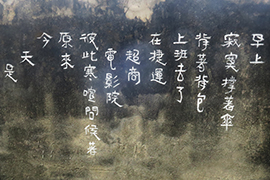 早上
寂寞撐著傘
背著背包
上班去了
在捷運
超商
電影院
彼此寒喧問候著
原來
今天
是